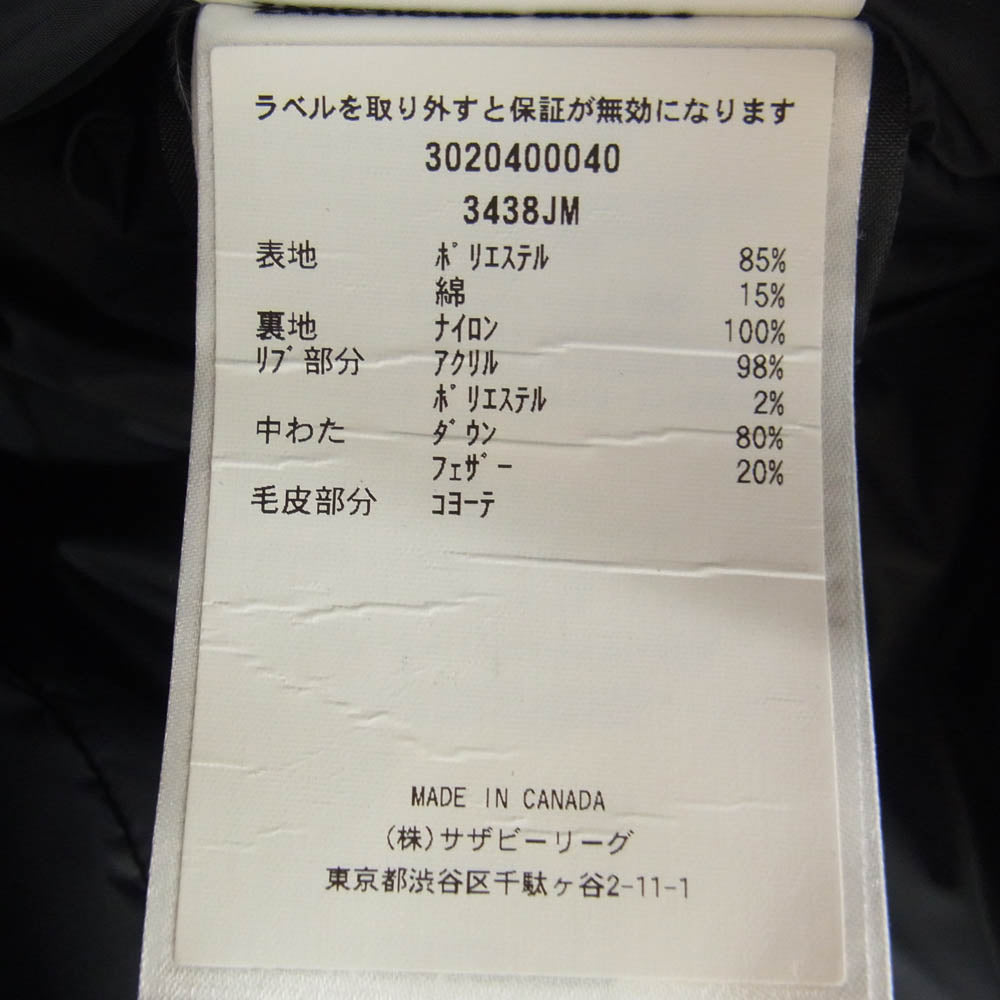 ラベルを取り外すと保証が無効になります
3020400040
3438JM
表地 ﾎﾟﾘｴｽﾃﾙ 85%
綿 15%
裏地 ﾅｲﾛﾝ 100%
ﾘﾌﾞ部分 ｱｸﾘﾙ 98%
ﾎﾟﾘｴｽﾃﾙ 2%
中わた ﾀﾞｳﾝ 80%
ﾌｪｻﾞｰ 20%
毛皮部分 ｺﾖｰﾃ
MADE IN CANADA
(株)サザビーリーグ
東京都渋谷区千駄ヶ谷2-11-1